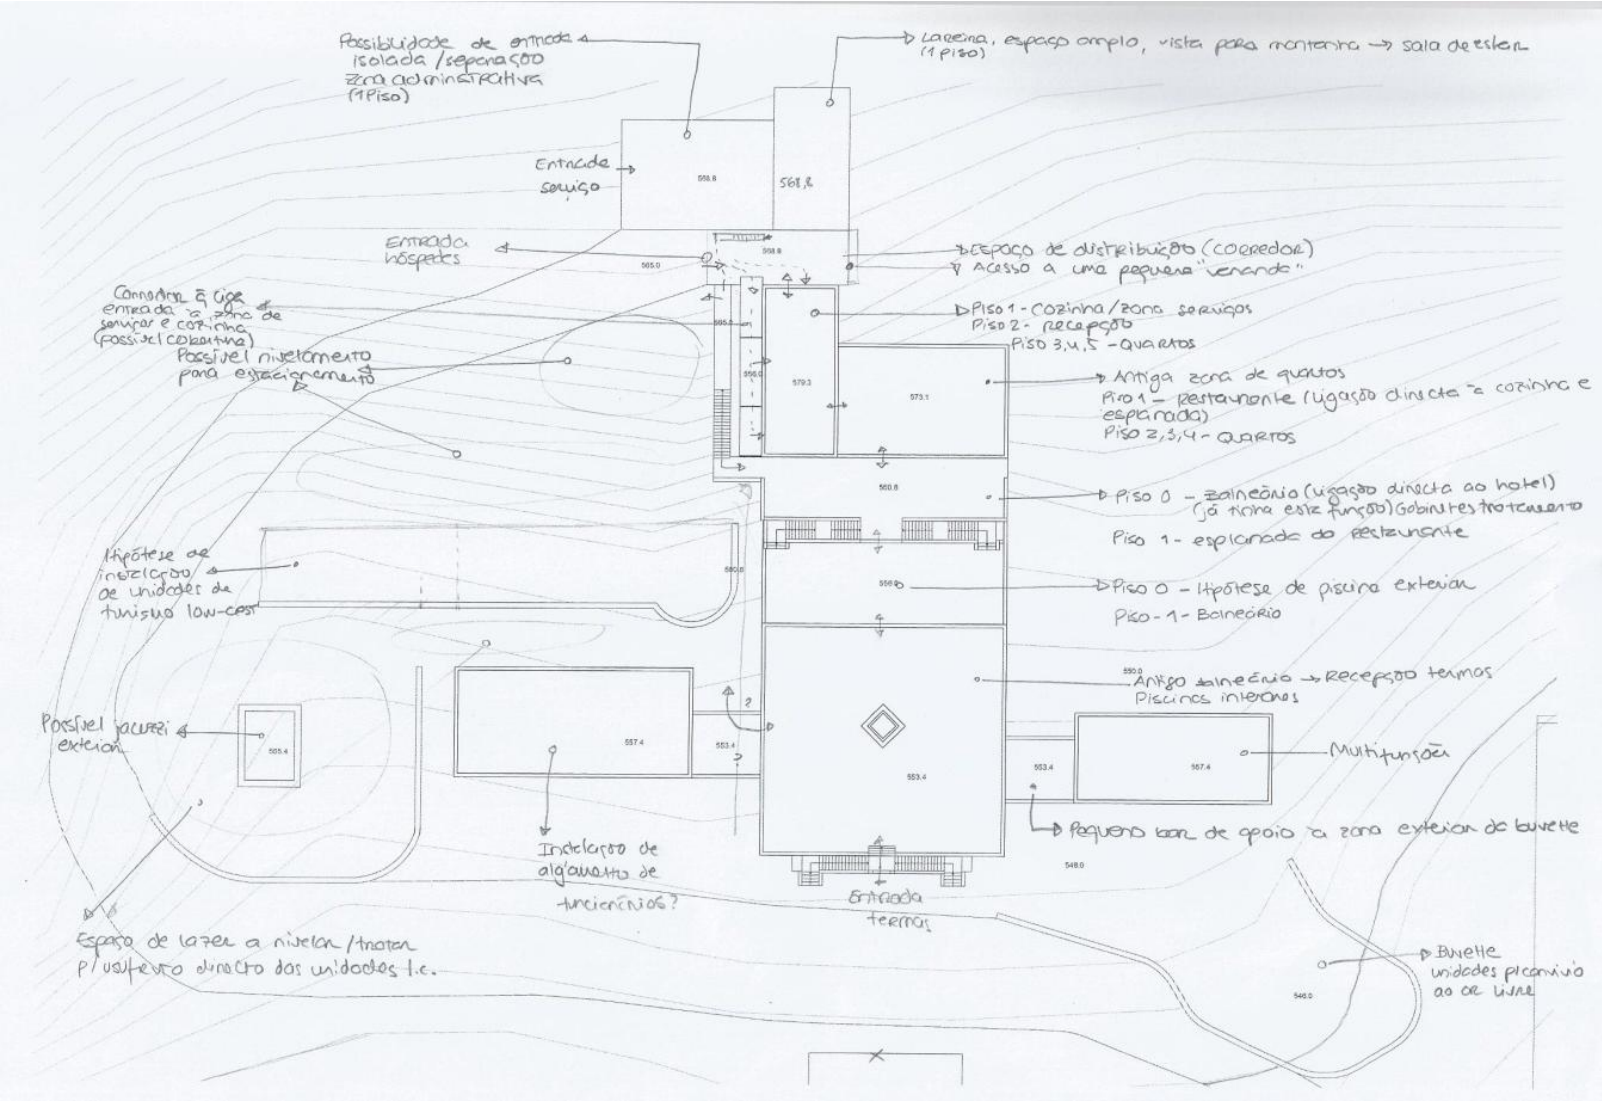 Possibilidade de entrada
isolada/separação
zona administrativa
(1Piso)
Lareira, espaço amplo, vista para montanha → sala de estar
(1 piso)
Entrada
serviço
568.8
568,8
Entrada
hóspedes
565.0
568.8
Espaço de distribuição (corredor)
Acesso a uma pequena "varanda"
Corredor q liga
entrada à zona de
serviços e cozinha
(possível cobertura)
Possível nivelamento
para estacionamento
Piso 1 - Cozinha/zona serviços
Piso 2 - Recepção
Piso 3,4,5 - Quartos
579.3
573.1
Antiga zona de quartos
Piso 1 - Restaurante (ligação directa à cozinha e
esplanada)
Piso 2,3,4 - Quartos
560.6
Piso 0 - Balneário (ligação directa ao hotel)
(já tinha esta função) Gabinetes tratamento
Piso 1 - esplanada do restaurante
Hipótese de
instalação
de unidades de
turismo low-cost
Piso 0 - Hipótese de piscina exterior
Piso -1 - Balneário
550.0
Antigo balneário → Recepção termas
Piscinas interiores
Possível jacuzzi
exterior
557.4
553.4
2
?
553.4
553.4
557.4
Multifunções
Pequeno bar de apoio à zona exterior da buvette
Instalação de
alojamento de
funcionários?
Entrada
termas
548.0
Espaço de lazer a nivelar/tratar
p/ usufruto directo das unidades l.c.
Buvette
unidades p/convívio
ao ar livre
546.0